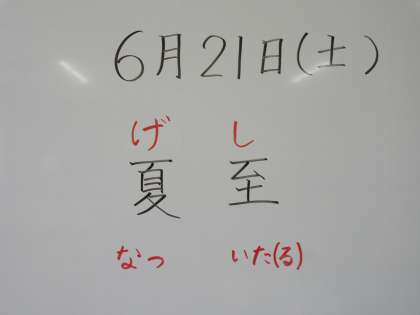 6月21日(土)
げ し
夏 至
なつ いた(る)